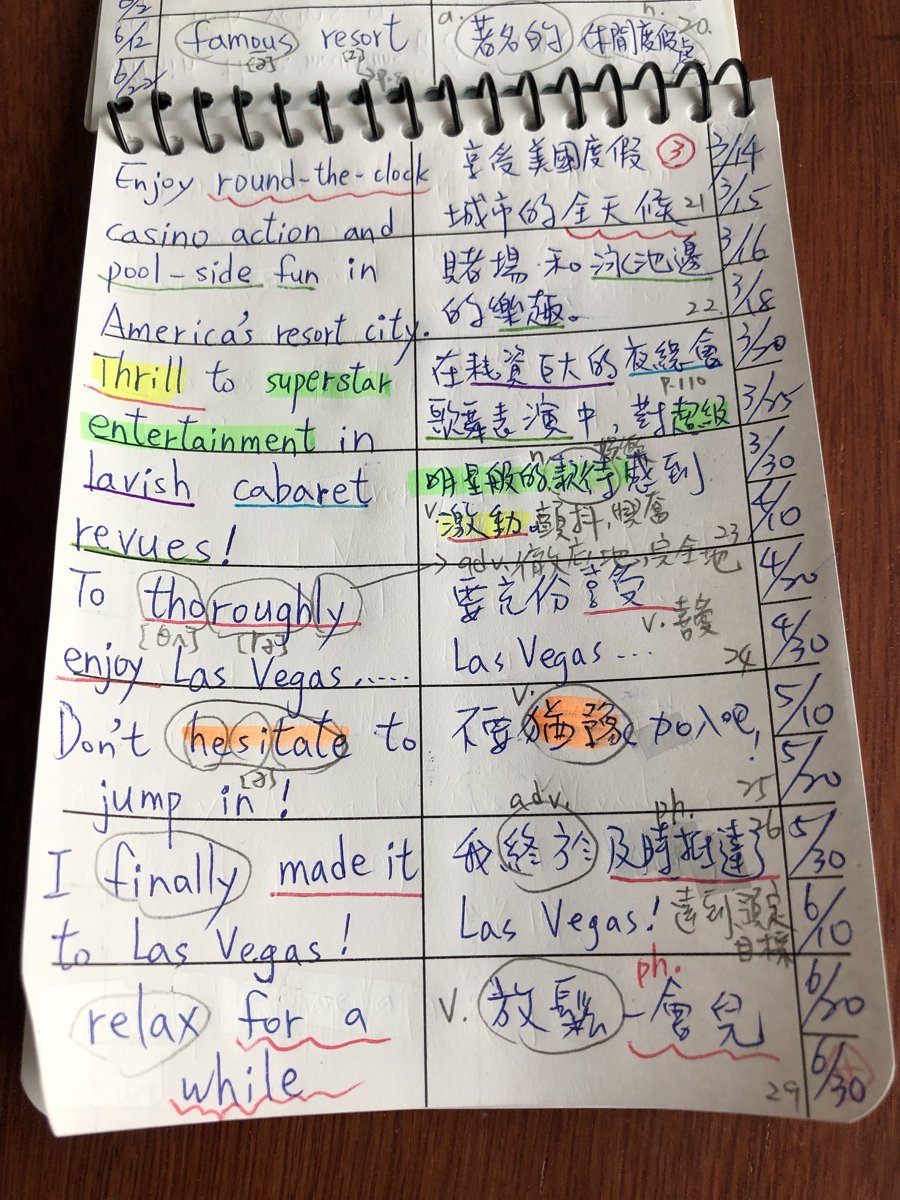 6/12
famous resort
a.
著名的
n.
休閒度假
20.
[ə]
Enjoy round-the-clock
casino action and
pool-side fun in
America's resort city.
享受美國度假 3
城市的全天候 21
賭場和泳池邊
的樂趣。 22
3/14
3/15
3/16
3/18
Thrill to superstar
entertainment in
lavish cabaret
revues!
在耗資巨大的夜總會
P.110
歌舞表演中,對超級
n.
明星般的款待感到
v.
激動。顫抖,興奮
23
3/20
3/25
3/30
4/10
To thoroughly
enjoy Las Vegas......
adv. 徹底地,完全地
要充份享受
v. 喜愛
Las Vegas ... 24
4/20
4/30
Don't hesitate to
[ə]
jump in!
v.
不要猶豫加入吧!
25
5/10
5/20
I finally made it
to Las Vegas!
adv.
ph.
我終於及時抵達了
26
Las Vegas! 達到預定
目標
5/30
6/10
relax for a
while
ph.
v. 放鬆一會兒
29
6/20
6/30